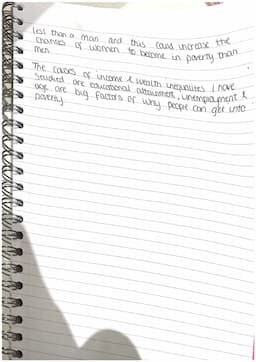 less than a man and thus could increase the
chances of women to become in poverty than
men.
The causes of income & wealth inequalities I have
studied are educational attainment, unemployment &
age are big factors of why people can get into
poverty.